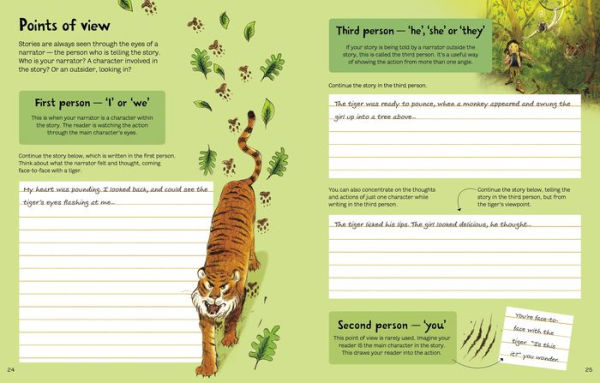 Points of view
Stories are always seen through the eyes of a
narrator — the person who is telling the story.
Who is your narrator? A character involved in
the story? Or an outsider, looking in?
First person — 'I' or 'we'
This is when your narrator is a character within
the story. The reader is watching the action
through the main character's eyes.
Continue the story below, which is written in the first person.
Think about what the narrator felt and thought, coming
face-to-face with a tiger.
My heart was pounding. I looked back, and could see the
tiger's eyes flashing at me...
24
Third person — 'he', 'she' or 'they'
If your story is being told by a narrator outside the
story, this is called the third person. It's a useful way
of showing the action from more than one angle.
Continue the story in the third person.
The tiger was ready to pounce, when a monkey appeared and swung the
girl up into a tree above...
You can also concentrate on the thoughts
and actions of just one character while
writing in the third person.
Continue the story below, telling the
story in the third person, but from
the tiger's viewpoint.
The tiger licked his lips. The girl looked delicious, he thought...
Second person — 'you'
This point of view is rarely used. Imagine your
reader IS the main character in the story.
This draws your reader into the action.
You're face-to-
face with the
tiger. "Is this
it?" you wonder.
25